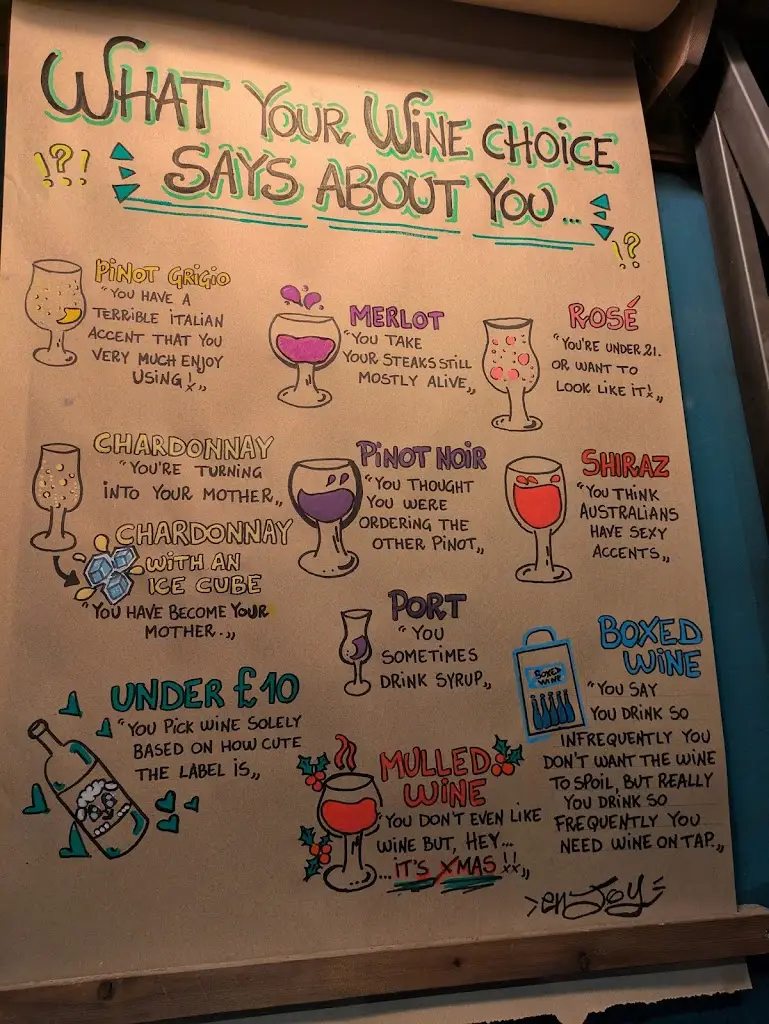 WHAT YOUR WINE CHOICE
SAYS ABOUT YOU...
!?!
!?
PINOT GRIGIO
"YOU HAVE A
TERRIBLE ITALIAN
ACCENT THAT YOU
VERY MUCH ENJOY
USING!"
MERLOT
"YOU TAKE
YOUR STEAKS STILL
MOSTLY ALIVE"
ROSÉ
"YOU'RE UNDER 21.
OR WANT TO
LOOK LIKE IT!"
CHARDONNAY
"YOU'RE TURNING
INTO YOUR MOTHER"
CHARDONNAY
WITH AN
ICE CUBE
"YOU HAVE BECOME YOUR
MOTHER."
PINOT NOIR
"YOU THOUGHT
YOU WERE
ORDERING THE
OTHER PINOT"
SHIRAZ
"YOU THINK
AUSTRALIANS
HAVE SEXY
ACCENTS"
PORT
"YOU
SOMETIMES
DRINK SYRUP"
BOXED
WINE
BOXED
WINE
"YOU SAY
YOU DRINK SO
INFREQUENTLY YOU
DON'T WANT THE WINE
TO SPOIL, BUT REALLY
YOU DRINK SO
FREQUENTLY YOU
NEED WINE ON TAP."
UNDER £10
"YOU PICK WINE SOLELY
BASED ON HOW CUTE
THE LABEL IS"
MULLED
WINE
"YOU DON'T EVEN LIKE
WINE BUT, HEY...
...IT'S XMAS!!"
enJoy